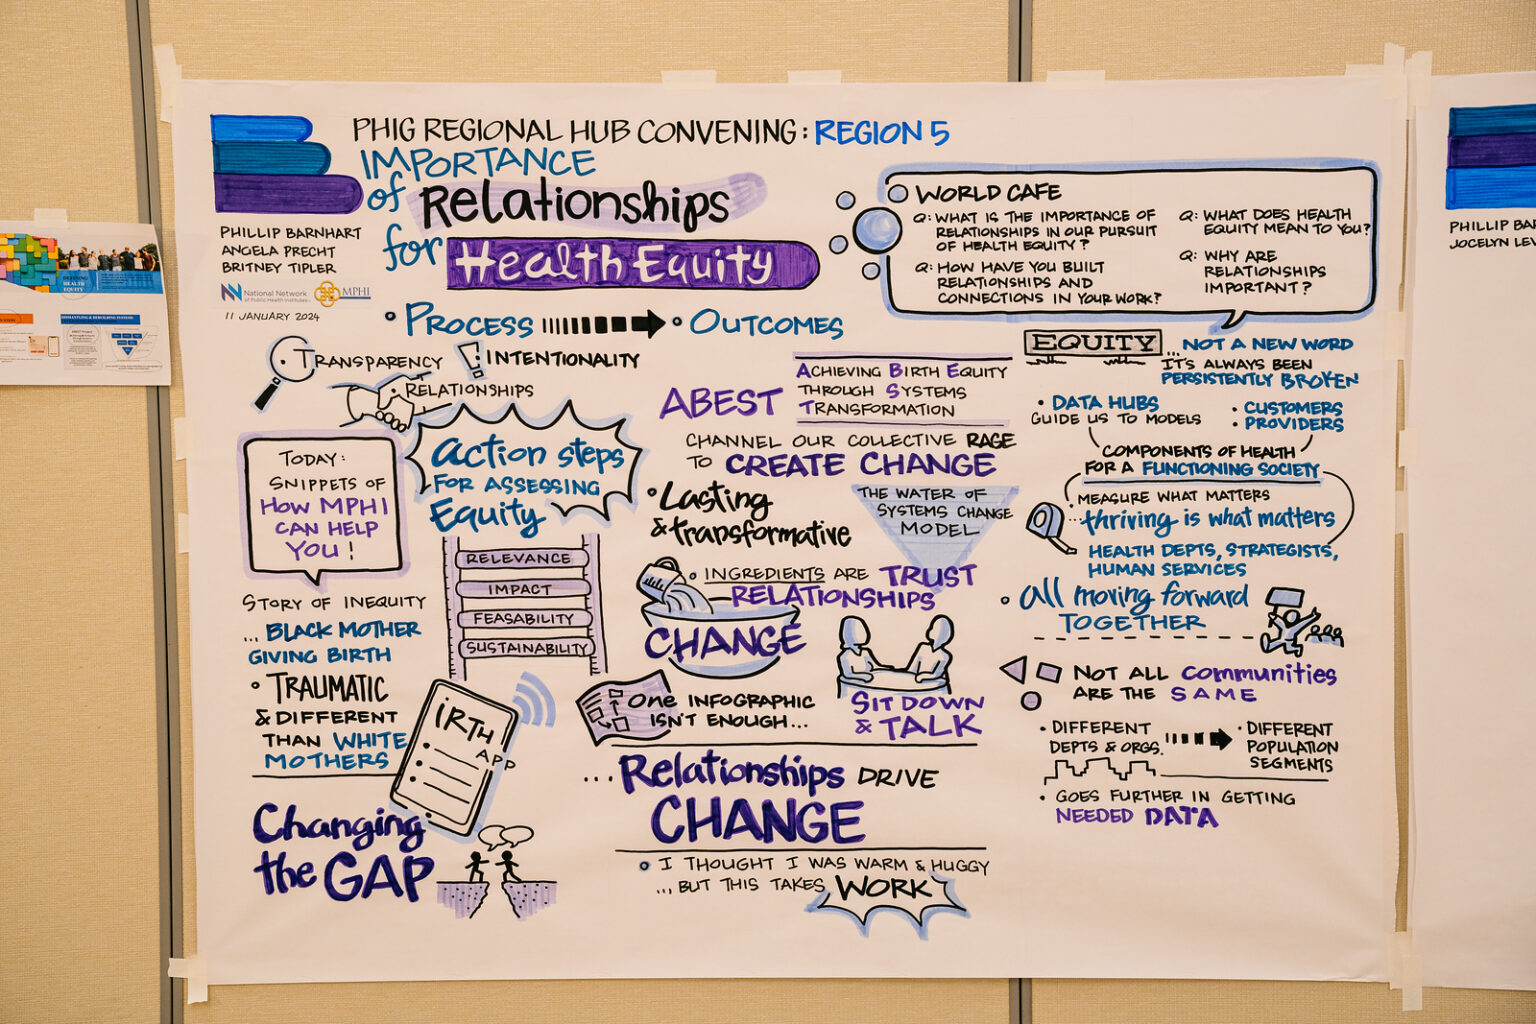 PHIG REGIONAL HUB CONVENING: REGION 5
IMPORTANCE
of Relationships
for Health Equity
PHILLIP BARNHART
ANGELA PRECHT
BRITNEY TIPLER
National Network
of Public Health Institutes
MPHI
11 JANUARY 2024
• PROCESS • OUTCOMES
WORLD CAFE
Q: WHAT IS THE IMPORTANCE OF
RELATIONSHIPS IN OUR PURSUIT
OF HEALTH EQUITY?
Q: HOW HAVE YOU BUILT
RELATIONSHIPS AND
CONNECTIONS IN YOUR WORK?
Q: WHAT DOES HEALTH
EQUITY MEAN TO YOU?
Q: WHY ARE
RELATIONSHIPS
IMPORTANT?
• TRANSPARENCY
INTENTIONALITY
• RELATIONSHIPS
TODAY:
SNIPPETS OF
HOW MPHI
CAN HELP
YOU!
Action steps
FOR ASSESSING
Equity
RELEVANCE
IMPACT
FEASABILITY
SUSTAINABILITY
STORY OF INEQUITY
... BLACK MOTHER
GIVING BIRTH
• TRAUMATIC
& DIFFERENT
THAN WHITE
MOTHERS
IRTH
APP
Changing
the GAP
ABEST
ACHIEVING BIRTH EQUITY
THROUGH SYSTEMS
TRANSFORMATION
CHANNEL OUR COLLECTIVE RAGE
TO CREATE CHANGE
• Lasting
& transformative
THE WATER OF
SYSTEMS CHANGE
MODEL
• INGREDIENTS ARE TRUST
RELATIONSHIPS
CHANGE
One INFOGRAPHIC
ISN'T ENOUGH...
SIT DOWN
& TALK
... Relationships DRIVE
CHANGE
• I THOUGHT I WAS WARM & HUGGY
... BUT THIS TAKES WORK
EQUITY
... NOT A NEW WORD
IT'S ALWAYS BEEN
PERSISTENTLY BROKEN
• DATA HUBS
GUIDE US TO MODELS
• CUSTOMERS
• PROVIDERS
COMPONENTS OF HEALTH
FOR A FUNCTIONING SOCIETY
MEASURE WHAT MATTERS
... thriving is what matters
HEALTH DEPTS, STRATEGISTS,
HUMAN SERVICES
• All moving forward
TOGETHER
NOT ALL communities
ARE THE SAME
• DIFFERENT
DEPTS & ORGS.
• DIFFERENT
POPULATION
SEGMENTS
• GOES FURTHER IN GETTING
NEEDED DATA
DEFINING
HEALTH
EQUITY
DISMANTLING & REBUILDING SYSTEMS
PHILLIP BAR
JOCELYN LE